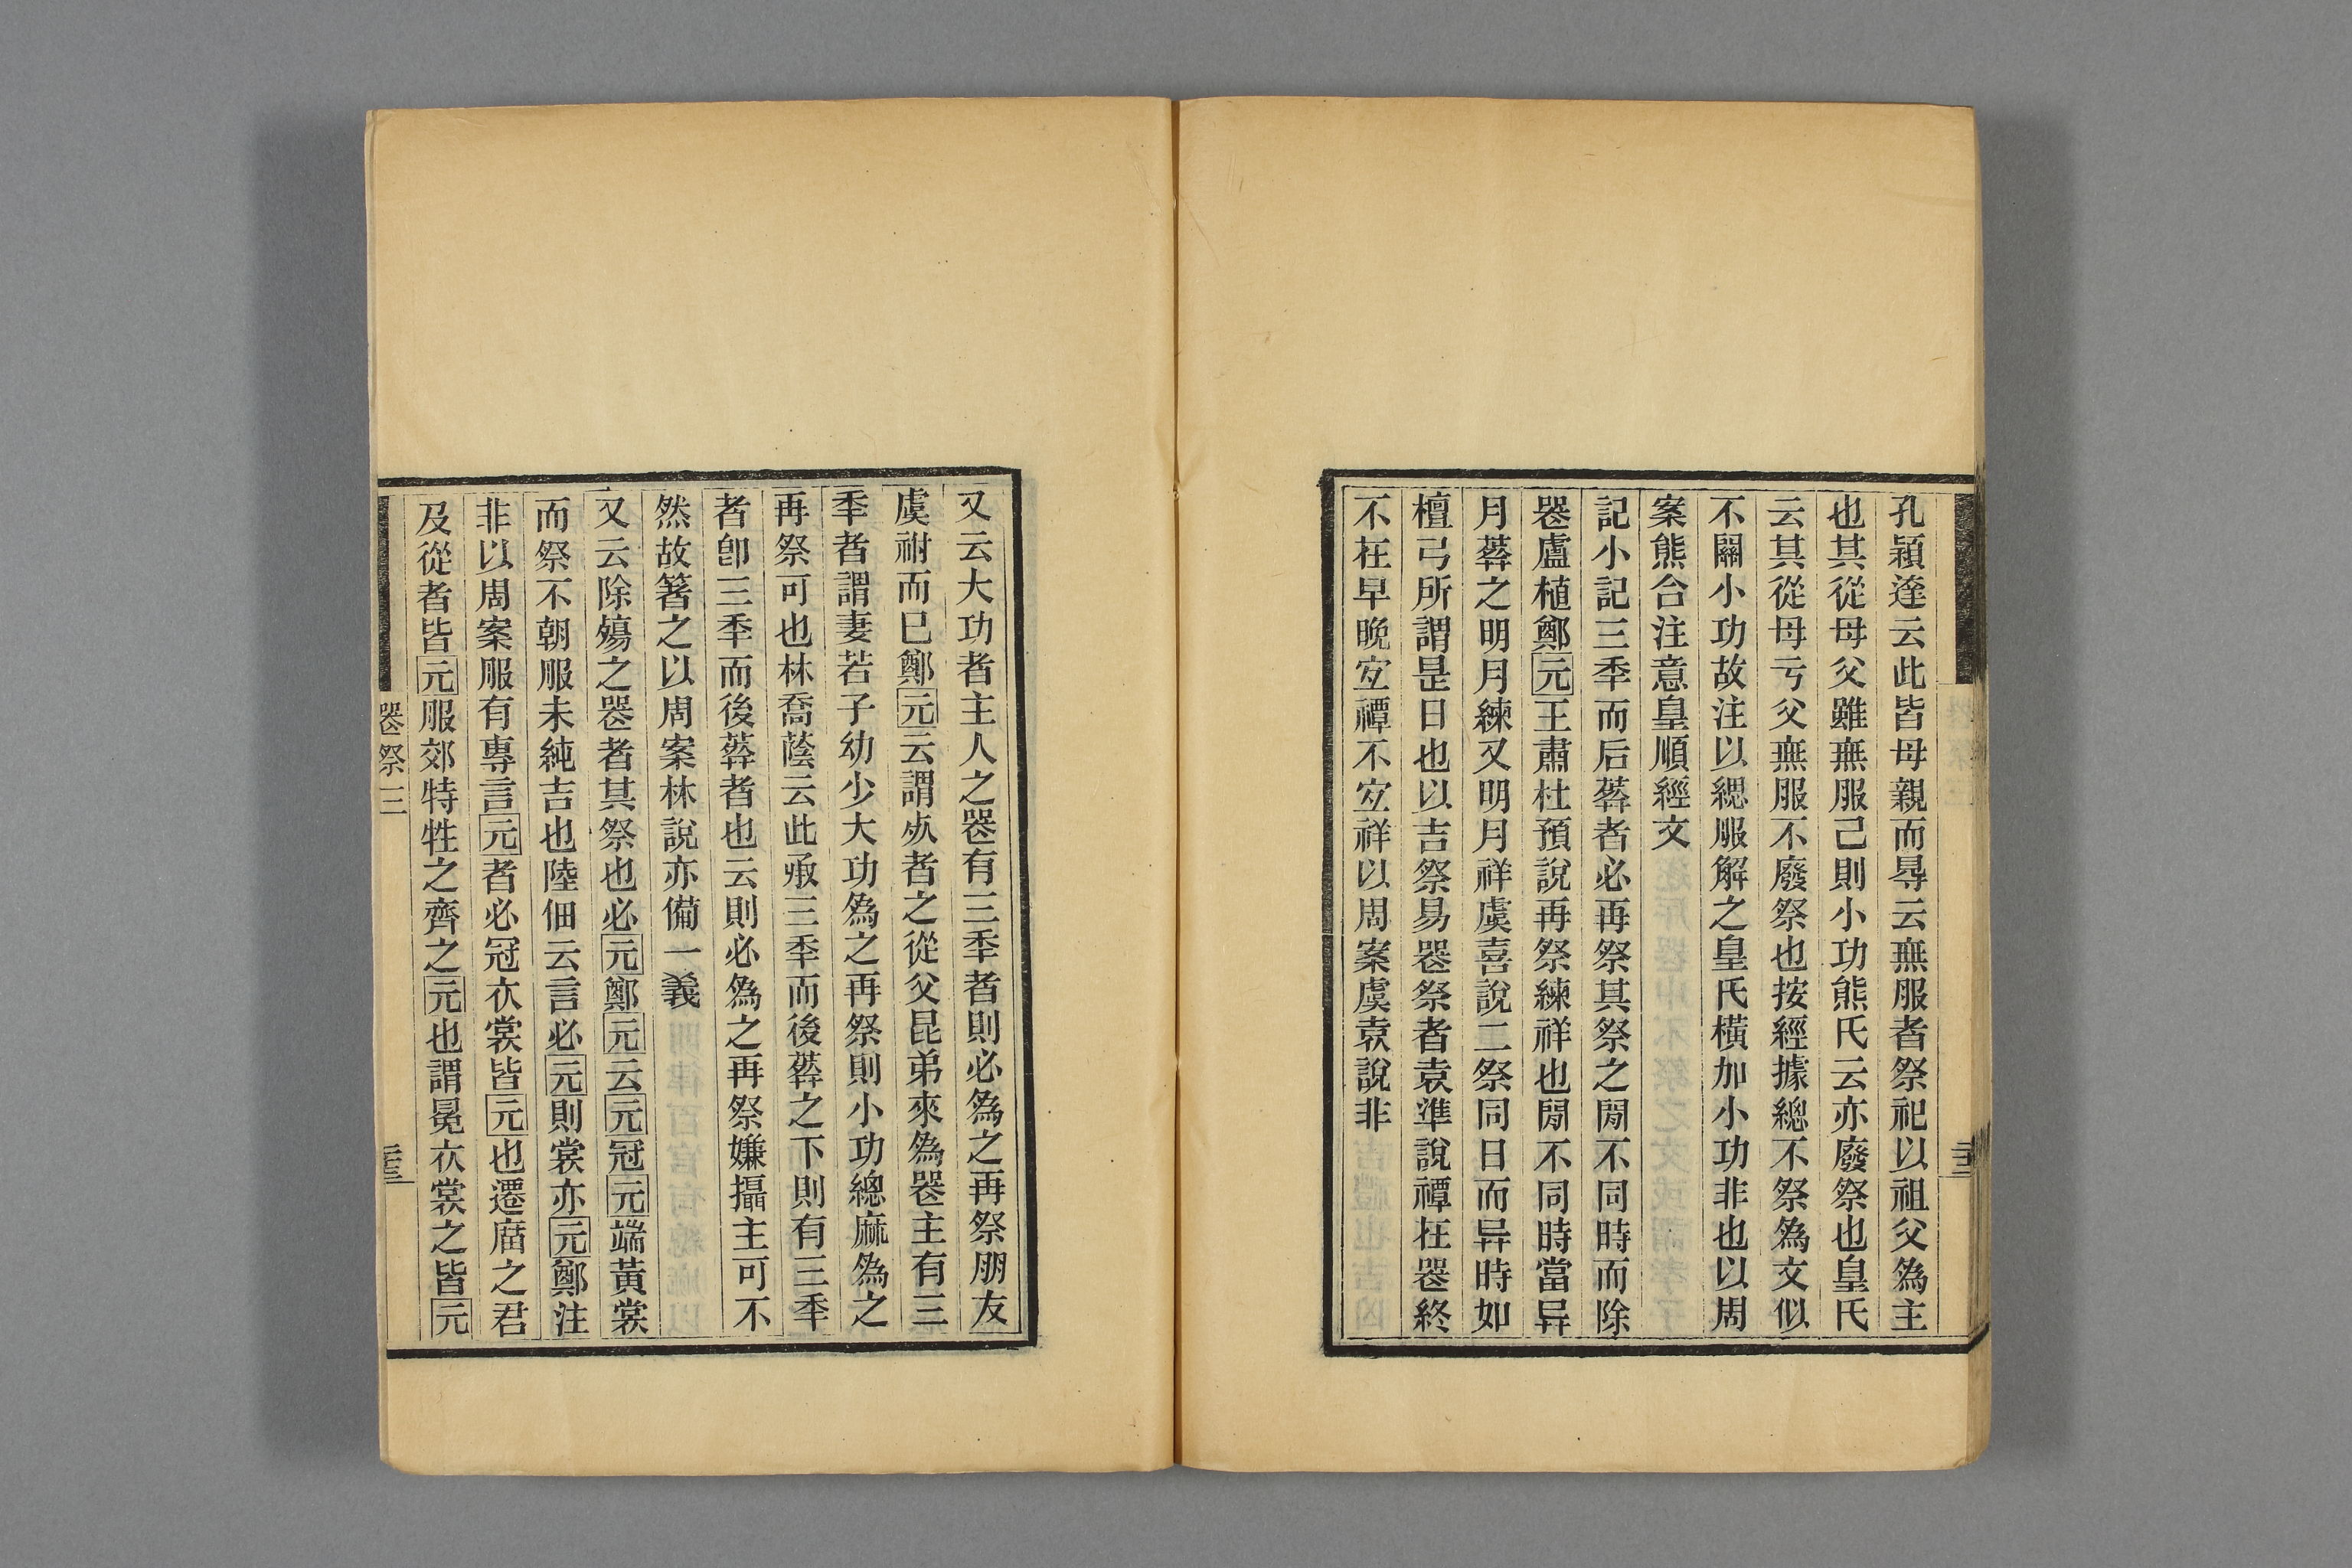 孔穎達云此皆母親而㝵云無服者祭祀以祖父為主
也其從母父雖無服己則小功熊氏云亦廢祭也皇氏
云其從母亏父無服不廢祭也按經據緫不祭為文似
不關小功故注以緦服解之皇氏橫加小功非也以周
案熊合注意皇順經文
記小記三秊而后葬者必再祭其祭之閒不同時而除
喪盧植鄭元王肅杜預說再祭練祥也閒不同時當异
月葬之明月練又明月祥虞喜說二祭同日而异時如
檀弓所謂是日也以吉祭易喪祭者袁準說禫在喪終
不在早晚宐禫不宐祥以周案虞袁說非
又云大功者主人之喪有三秊者則必為之再祭朋友
虞祔而已鄭元云謂死者之從父昆弟來為喪主有三
秊者謂妻若子幼少大功為之再祭則小功緫麻為之
再祭可也林喬蔭云此承三秊而後葬之下則有三秊
者卽三秊而後葬者也云則必為之再祭嫌攝主可不
然故箸之以周案林說亦備一義
又云除殤之喪者其祭也必元鄭元云元冠元端黃裳
而祭不朝服未純吉也陸佃云言必元則裳亦元鄭注
非以周案服有專言元者必冠衣裳皆元也遷廟之君
及從者皆元服郊特牲之齊之元也謂冕衣裳之皆元
喪祭三